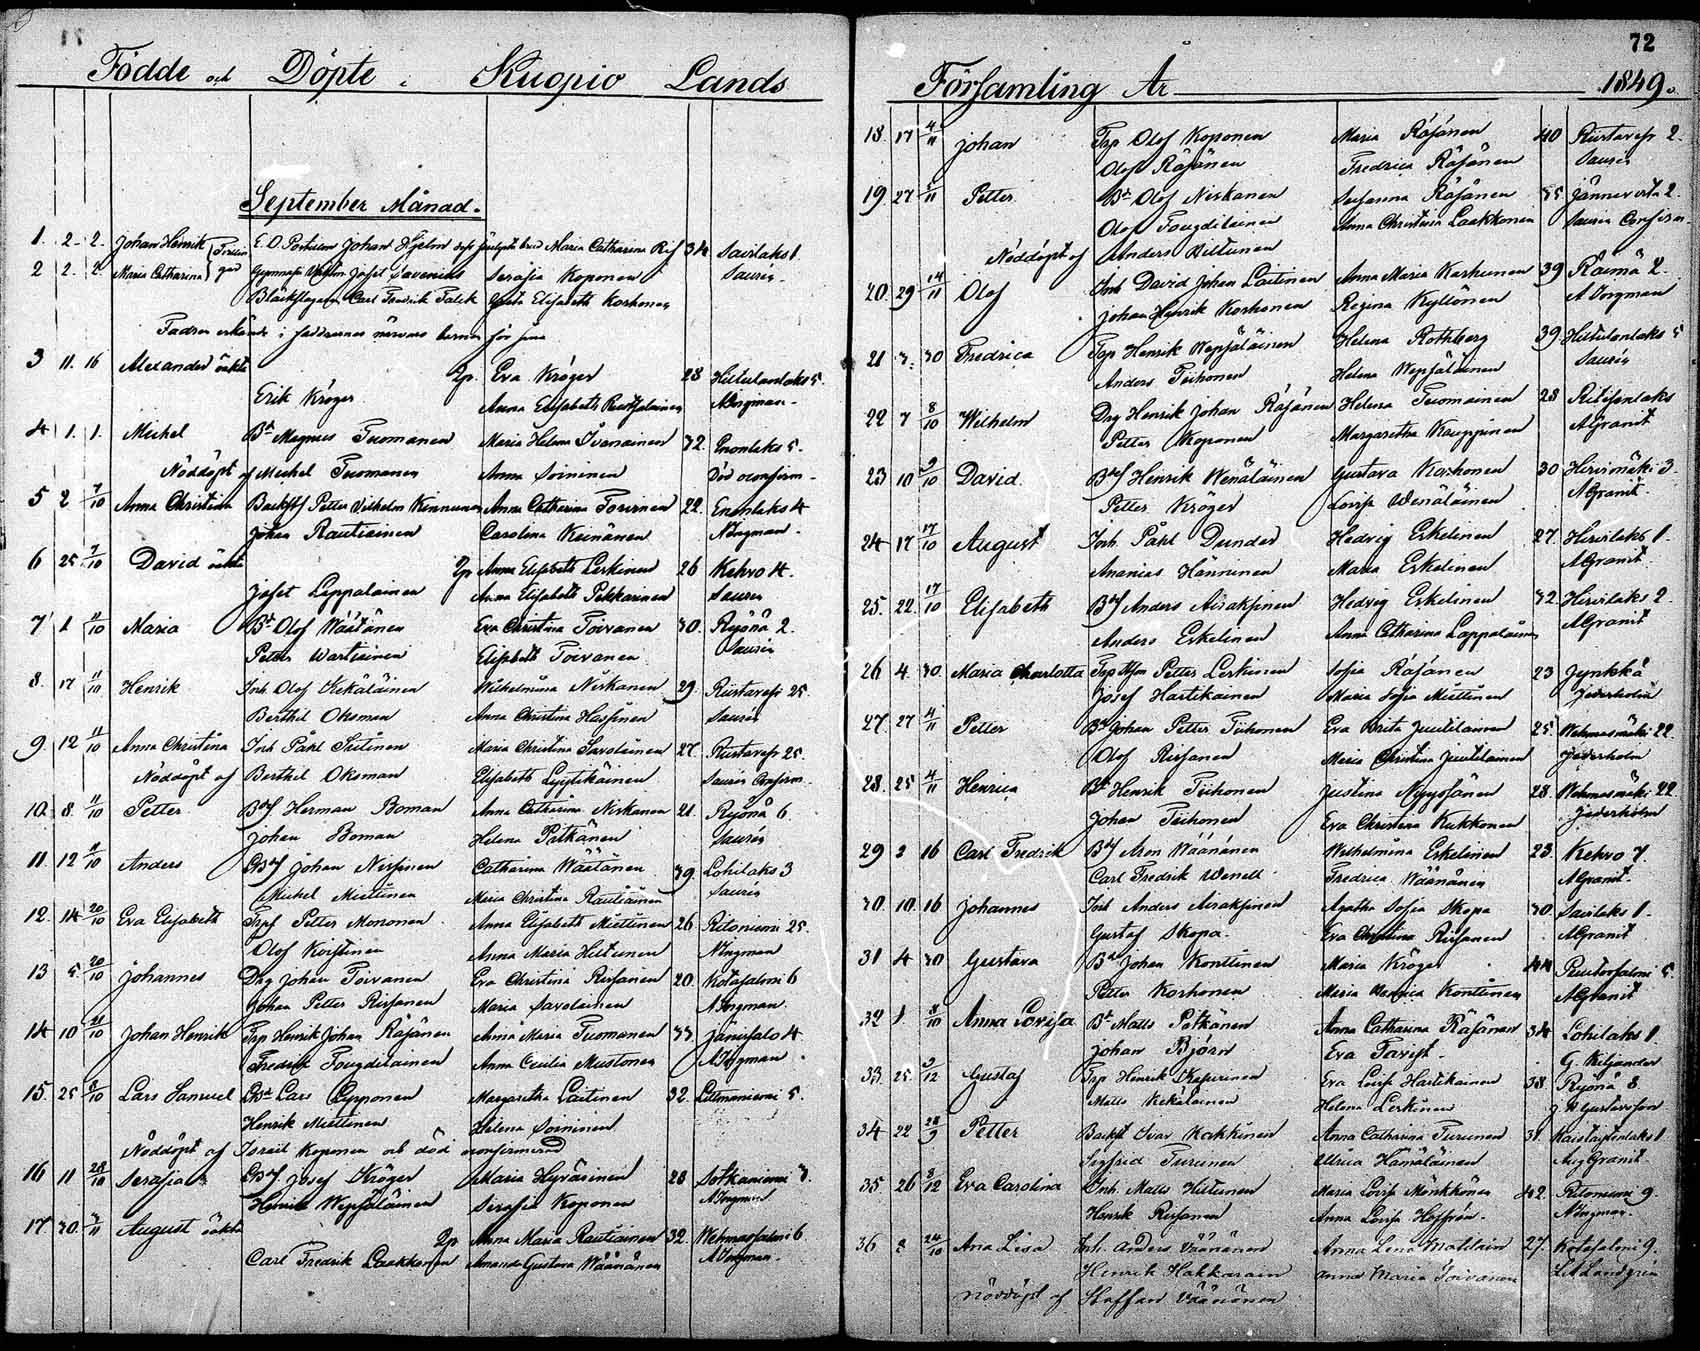 Födde och Döpte i Kuopio Lands
September Månad.
1. 2. 2. Johan Henrik E. O. Johan Hjelm Maria Catharina 34 Savilaks 1.
2 2. 2. Maria Catharina Serafia Koponen Saurén
Carl Fredrik Falck Elisabeth Korhonen
3 11. 16 Alexander oäkta Eva Kröger 28 Hiltulanlaks 5.
Erik Kröger Anna Elisabeth
4 1. 1. Michel Bd Magnus Tuomanen Maria Helena 32. Enonlaks 5.
Nöddöpt af Michel Tuomanen Anna Soininen Död
5 2 7/10 Anna Christina Petter Vilhelm Kinnunen Anna Catharina Toivinen 22. Enonlaks 4
Johan Rautiainen Carolina Keinänen A Ingman.
6 25 7/10 David oäkta Anna Elisabeth Leskinen 26 Kehvo 4.
Josef Lappalainen Anna Elisabeth Pekkarinen Saurén
7 1 11/10 Maria Bd Olof Väätänen Eva Christina Toivanen 30. Ryönä 2.
Petter Wartiainen Elisabeth Toivanen Saurén
8. 17 11/10 Henrik Inh Olof Kekäläinen Wilhelmina Niskanen 29. Riistavesi 25.
Berthil Oksman Anna Christina Saurén
9 12 11/10 Anna Christina Inh Påhl Maria Christina Savolainen 27. Riistavesi 25.
Nöddöpt af Berthil Oksman Elisabeth Lyytikäinen Saurén Confirm.
10. 8. 11/10 Petter Herman Boman Anna Catharina Niskanen 21. Ryönä 6
Johan Boman Helena Pitkänen Saurén
11. 12 11/10 Anders Johan Nissinen Catharina Väätänen 39. Lohilaks 3
Michel Miettinen Maria Christina Rautiainen Saurén
12. 14 20/10 Eva Elisabeth Petter Mononen Anna Elisabeth Miettinen 26 Ritoniemi 25.
Olof Voistinen Anna Maria Hiltunen A Ingman
13 5. 20/10 Johannes Drg Johan Toivanen Eva Christina Rissanen 20. Kotasalmi 6
Johan Petter Rissanen Maria Savolainen A Ingman.
14 10 21/10 Johan Henrik Trp Henrik Johan Räsänen Anna Maria Tuomanen 33. Jänissalo 4
Fredrik Fougdilainen Anna Cecilia Mustonen A Ingman.
15. 25 8/10 Lars Samuel Lars Lipponen Margaretha Laitinen 32. Litmaniemi 5.
Henrik Miettinen Helena Soininen
Nöddöpt af Israel Koponen och död oconfirmerad
16 11 28/10 Serafia Josef Kröger Maria Hyvärinen 28 Sotkaniemi 3.
Henrik Wepsäläinen Serafia Koponen A Ingman
17. 30. 3/11 August oäkta Anna Maria Rautiainen 32. Wehmasalmi 6
Carl Fredrik Laakkonen Amanda Gustava Wäänänen A Ingman.
72
Församling År 1849.
18. 17 4/11 Johan Trp Olof Koponen Maria Räsänen 40 Riistavesi 2.
Olof Räsänen Fredrica Räsänen Saurén
19 27 Petter Bd Olof Niskanen Susanna Räsänen 35 Jännevirta 2
Olof Fougdilainen Anna Christina Laakkonen Saurén Confirm
Nöddöpt af Anders Hiltunen
20. 29 14/11 Olof Inh David Johan Laitinen Anna Maria Karhunen 39 Räimä 2.
Johan Henrik Korhonen Regina Kyllönen A Ingman
21 30 Fredrica Trp Henrik Wepsäläinen Helena Rothberg 39. Hiltulanlaks 5
Anders Tiihonen Helena Wepsäläinen Saurén
22 7 8/10 Wilhelm Drg Henrik Johan Räsänen Helena Tuomainen 28 Ritisenlaks
Petter Koponen Margaretha Kauppinen A Granit
23 10 9/10 David. Henrik Wenäläinen Gustava Korhonen 30 Hirvimäki 3.
Petter Kröger Lovisa Wenäläinen A Granit.
24 17 17/10 August Inh. Påhl Dunder Hedvig Eskelinen 27. Hirvilaks 1.
Ananias Hänninen Maria Eskelinen A Granit.
25. 22. 17/10 Elisabeth Anders Airaksinen Hedvig Eskelinen 32. Hirvilaks 2.
Anders Eskelinen Anna Catharina Lappalainen A Granit
26 4. 30. Maria Charlotta Petter Leskinen Sofia Räsänen 23 Jynkkä
Josef Hartikainen Maria Sofia Miettinen Jäderholm
27. 27 4/11 Petter Bd Johan Petter Tiihonen Eva Brita Juutilainen 25. Wehmasmäki 22.
Olof Rissanen Maria Christina Juutilainen Jäderholm
28. 25 4/11 Henrica Bd Henrik Tiihonen Justina Nyyssönen 28. Wehmasmäki 22
Johan Tiihonen Eva Christina Kukkonen Jäderholm
29 2 16 Carl Fredrik Aron Väänänen Wilhelmina Eskelinen 23. Kehvo 7.
Carl Fredrik Wenell Fredrica Wäänänen A Granit.
30 10. 16 Johannes Inh Anders Airaksinen Agatha Sofia Skopa 30. Savilaks 1.
Gustaf Skopa. Eva Christina Rissanen A Granit
31 4 30 Gustava Johan Konttinen Maria Kröger 44 5.
Petter Korhonen Maria Konttinen A Granit
32 1 8/10 Anna Lovisa Bd Matts Pitkänen Anna Catharina Räsänen 34 Lohilaks 1.
Johan Björn Eva Tavist. G. Kiljander
33. 25. 2/12 Gustaf Trp Henrik Eva Lovisa Hartikainen 38. Ryönä 8
Matts Kekäläinen Helena Leskinen Gustafsson
34 22 28/9 Petter Ivar Kokkinen Anna Catharina Turunen 31.
Sigfrid Turunen Ulrica Hämäläinen Aug Granit
35. 26 8/12 Eva Carolina Inh. Matts Hiltunen Maria Lovisa Mönkkönen 42. Ritoniemi 9.
Henrik Rissanen Anna Lovisa Hoffrén. A Ingman.
36 24/10 Ana Lisa Inh. Anders Väänänen Anna Lena 27. Kotasalmi 9.
Henrik Hakkarain Anna Maria Toivanen
nöddöpt af Staffan Väänänen